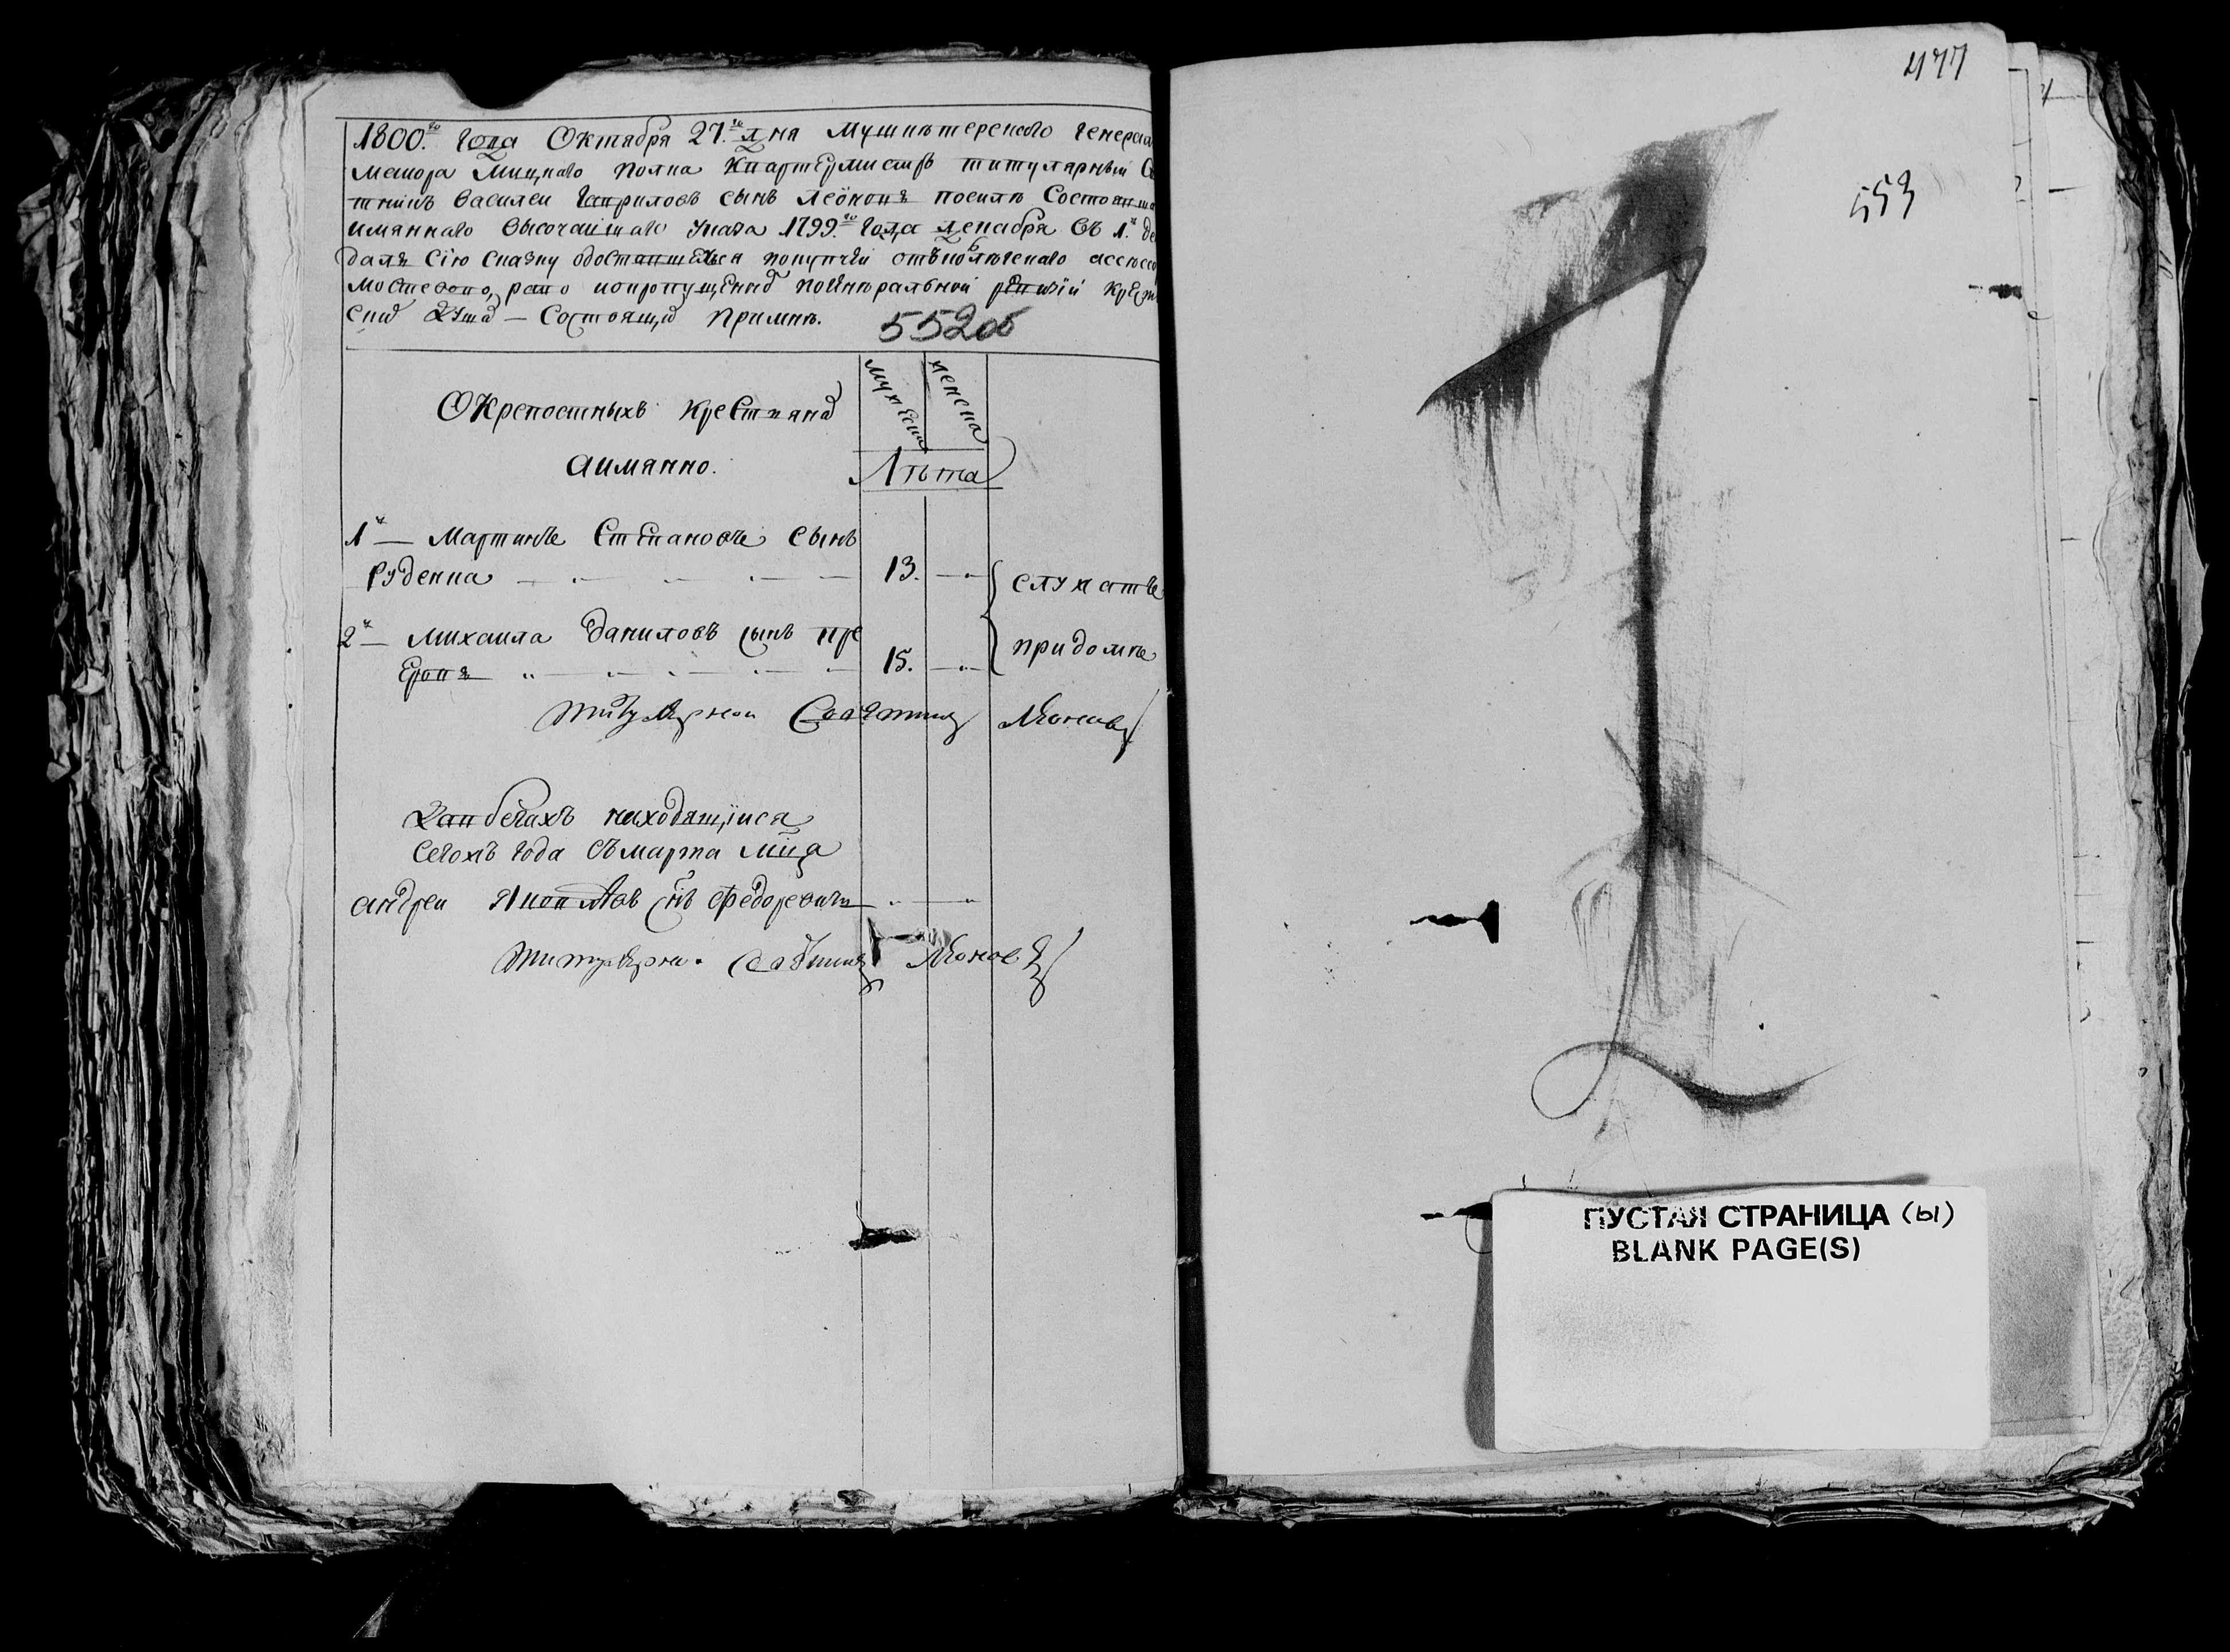 1800го Года Октября 27го дня Мушкатерскаго Генерал
маиора Мицкаго полка Квартермистръ титулярный Со
тникъ василеи Гавриловъ сынъ леонова посилѣ Состоявша
имяннаго высочаишаго указа 1799го Года декабря въ 1й де
далъ Сію сказку одоставшихся попупчей отъ
и опропущенныхъ погенеральной ревизіи крест
душъ — Состоящихъ примнѣ.
552об
Окрепостныхъ крестьянахъ
аимянно.
мужеска
женска
Лѣта
1й — Мартинъ Степановъ сынъ
Руденка
13.
служатъ
2й — Михаила даниловъ сынъ
15.
придомѣ
Титулярной Советникъ Леоновъ
вбегахъ находящійся
Сегожъ года Съ марта мца
андреи Яковлевъ снъ федоровичъ
Титулярной Советникъ Леоновъ
477
553
ПУСТАЯ СТРАНИЦА (Ы)
BLANK PAGE(S)